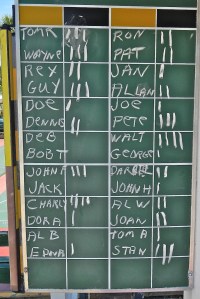 TOM K RON
WAYNE PAT
REX JAN
GUY ALLAN
DOE JOE
DENNE PETE
DEB WALT
BOB T GEORGE
JOHN T
JACK JOHN H
CHARLY AL W
DORA JOAN
AL B TOM A
EDNA STAN